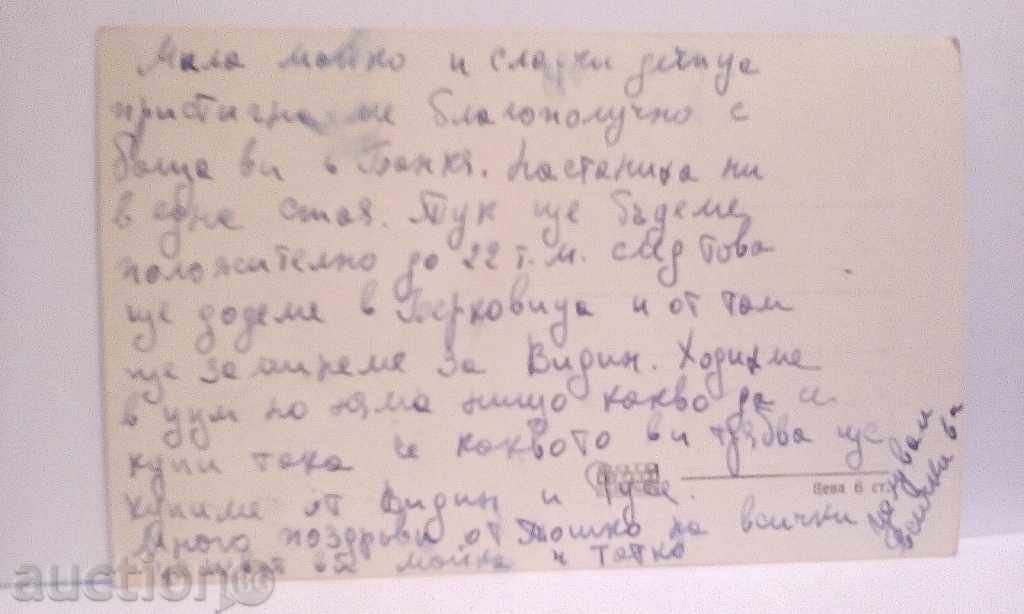 Мила майко и сладки дечица
пристигнахме благополучно с
баща ви в Банкя. Настаниха ни
в една стая. Тук ще бъдеме
положително до 22 т.м. след това
ще додеме в Берковица и от там
ще заминеме за Видин. Ходихме
в цум но няма нищо какво да се
купи така че каквото ви трябва ще
купиме от Видин и Русе.
Много поздрави от Тошко на всички
ви майка и татко
всички ви
Цена 6 ст.
auction